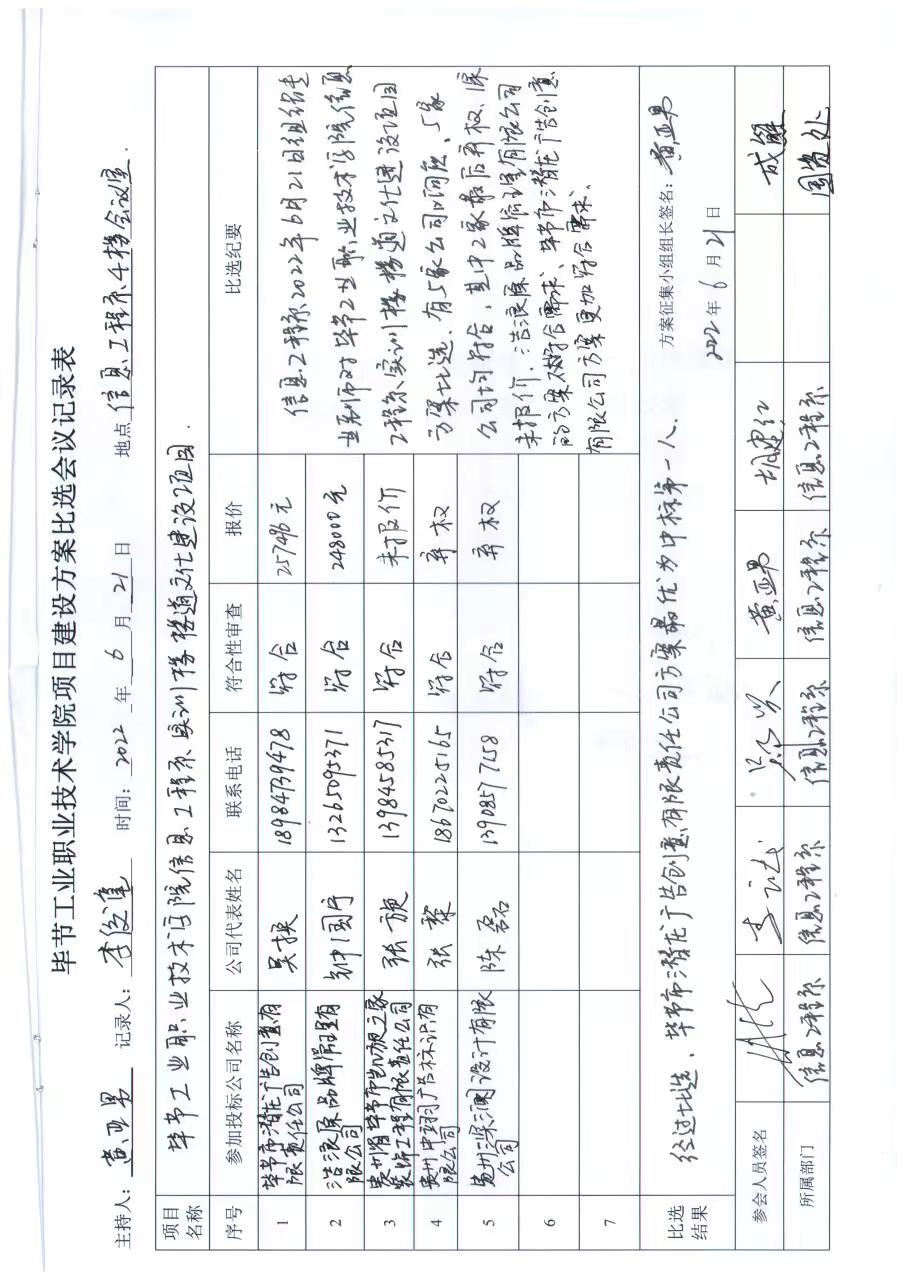 毕节工业职业技术学院项目建设方案比选会议记录表
主持人：黄亚男 记录人：李俊逸 时间：2022年6月21日 地点 信息工程系4楼会议室.
项目名称 毕节工业职业技术学院信息工程系实训楼楼道文化建设项目.
序号 参加投标公司名称 公司代表姓名 联系电话 符合性审查 报价 比选纪要
1 毕节市潜龙广告创意有限责任公司 吴换 18984739478 符合 257496元
2 浩浪原品牌管理有限公司 钟国宁 13265095371 符合 248000元
3 贵州省毕节市凯旋之家装饰工程有限责任公司 张旋 13984585317 符合 未报价
4 贵州中翊广告标识有限公司 张黎 18670225165 符合 弃权
5 贵州 设计有限公司 陈磊 13908577158 符合 弃权
6
7
信息工程系2022年6月21日组织专
业老师对毕节工业职业技术学院信息
工程系实训楼楼道文化建设项目
方案比选、有5家公司以响应、5家
公司均符合，其中2家最后弃权、1家
未报价、浩浪原品牌管理有限公司
的方案不太符合需求、毕节市潜龙广告创意
有限公司方案更加符合需求、
比选结果 经过比选、毕节市潜龙广告创意有限责任公司方案最优为中标第一人、
方案征集小组组长签名：黄亚男
2022年6月21日
参会人员签名 黄亚男 胡建红 成熊
所属部门 信息工程系 信息工程系 信息工程系 信息工程系 信息工程系 国资处